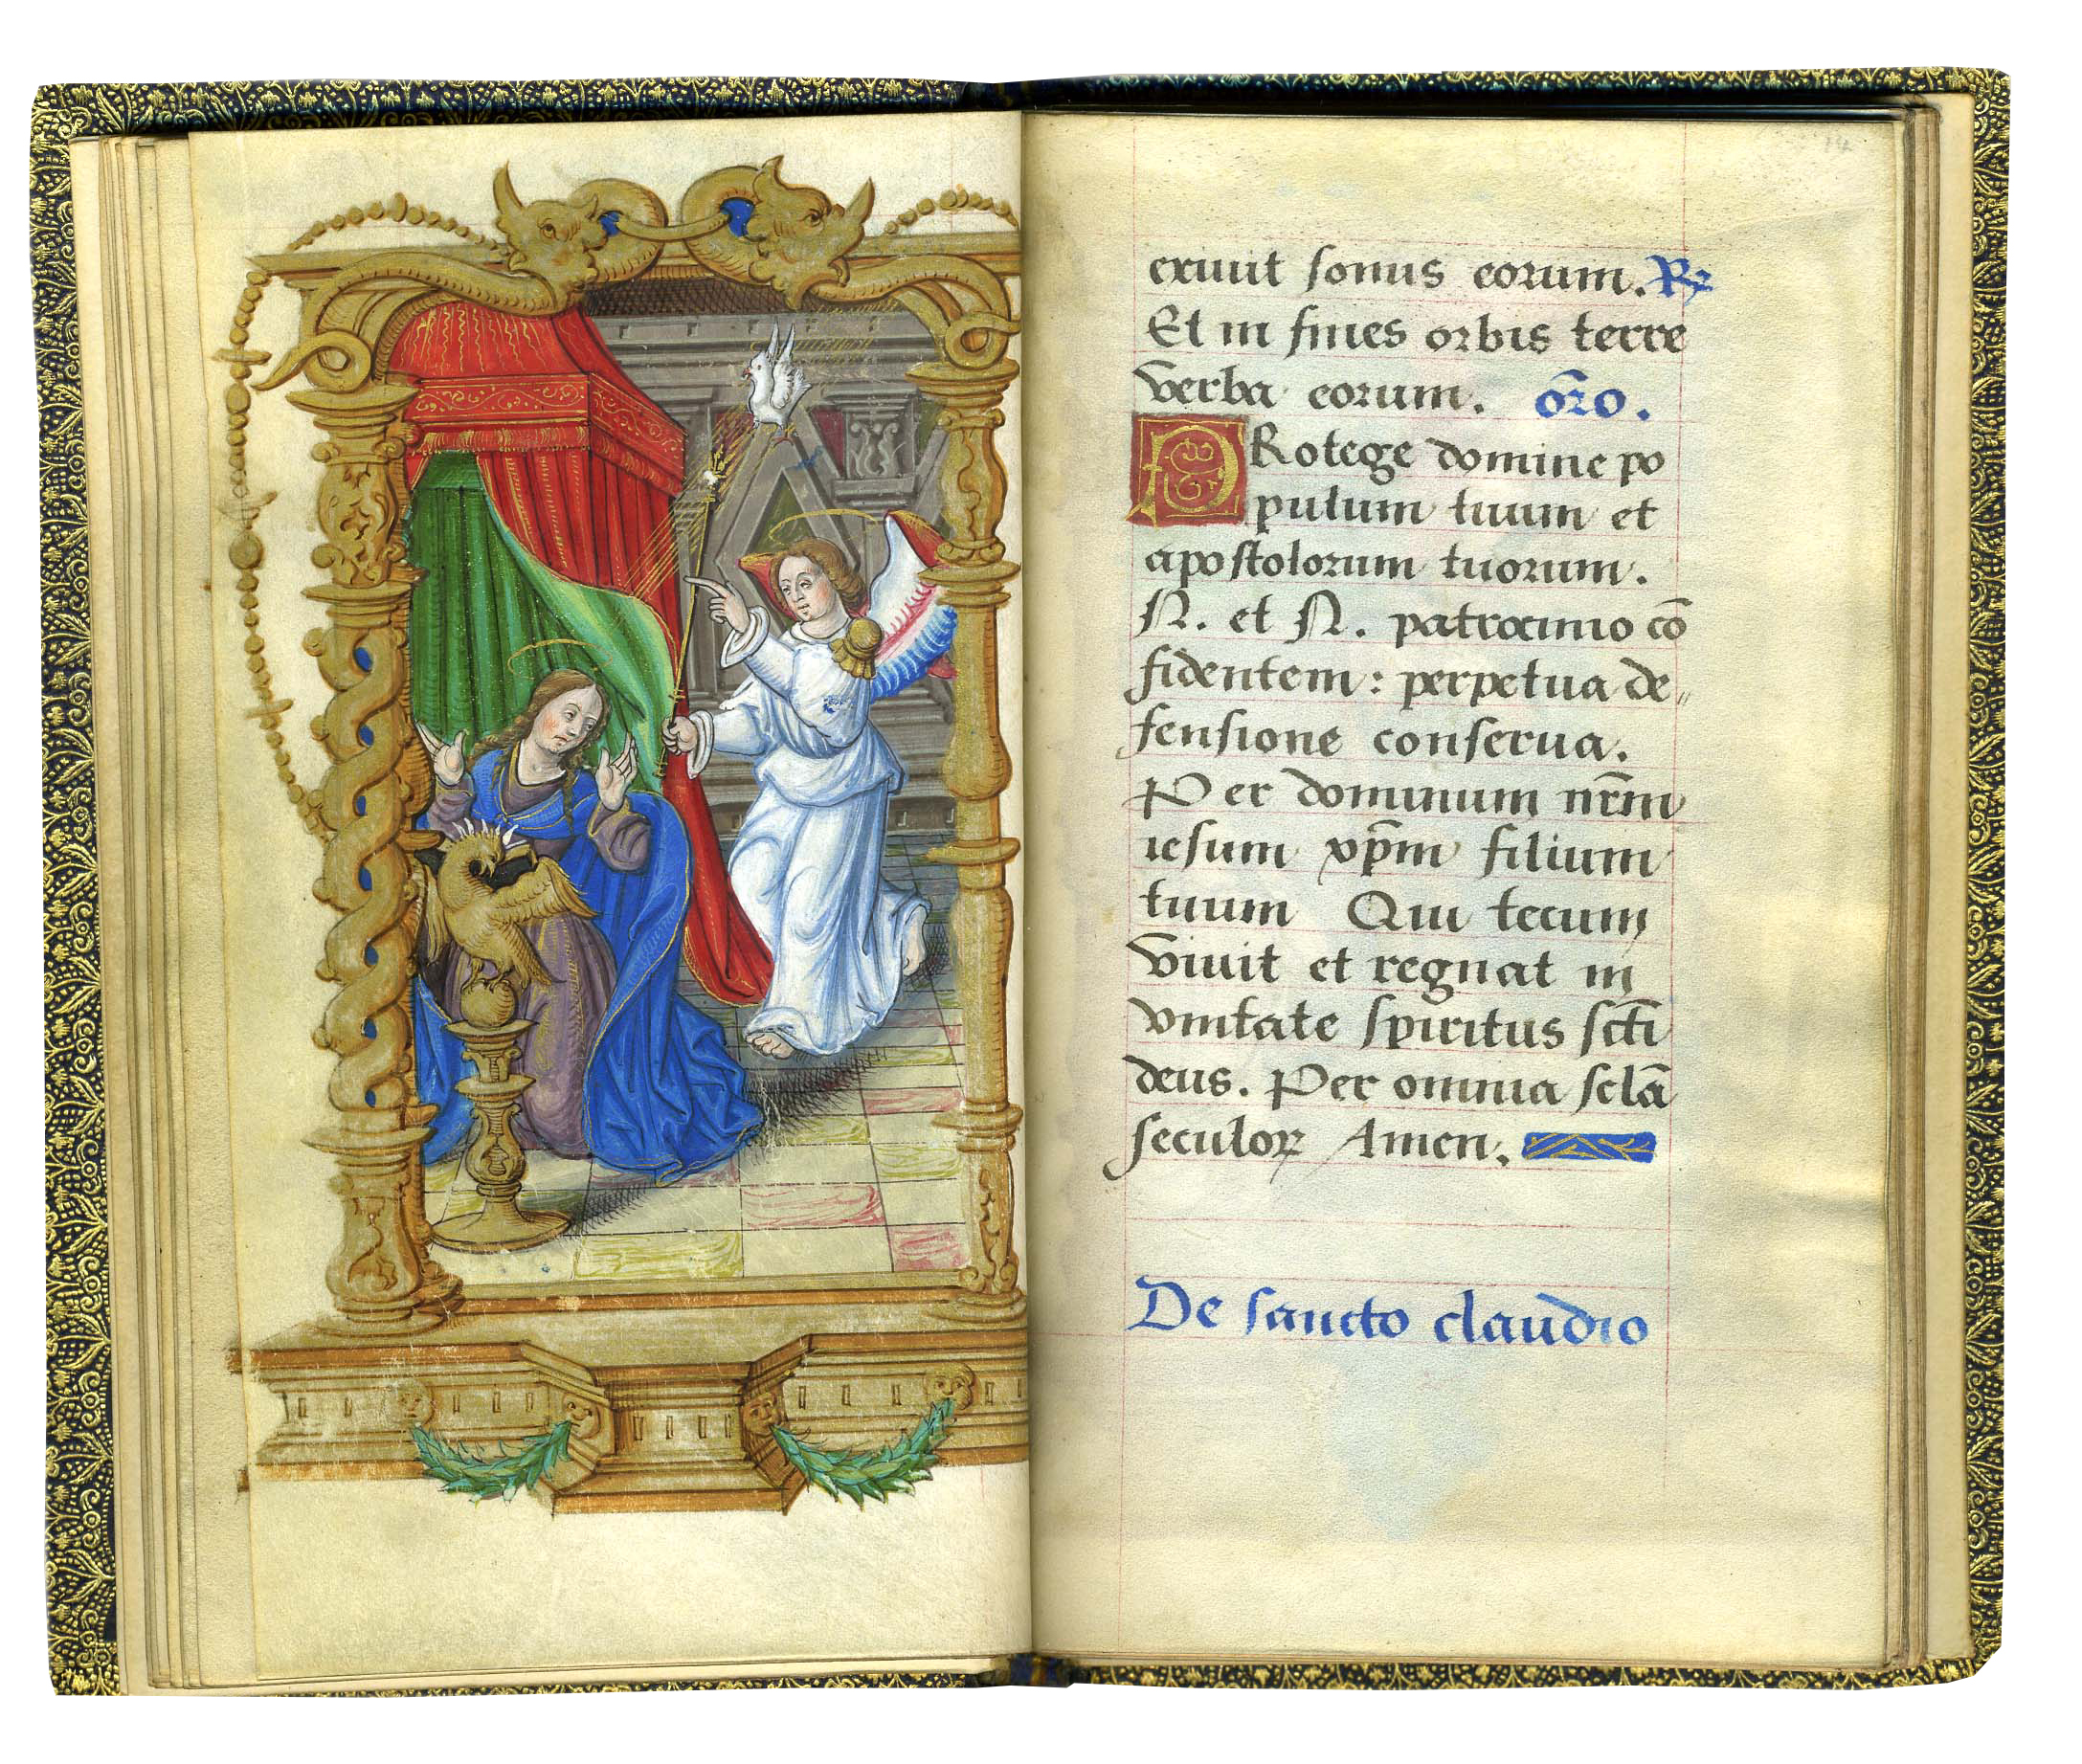 14
exiuit sonus eorum. R͛
Et in fines orbis terre
verba eorum. or̄o.
PRotege domine po
pulum tuum et
apostolorum tuorum.
N. et N. patrocinio cō
fidentem: perpetua de„
fensione conserua.
Per dominum nr̄m
iesum xp̄m filium
tuum Qui tecum
viuit et regnat in
vnitate spiritus sc̄ti
deus. Per omnia sclā
seculoꝝ Amen.
De sancto claudio